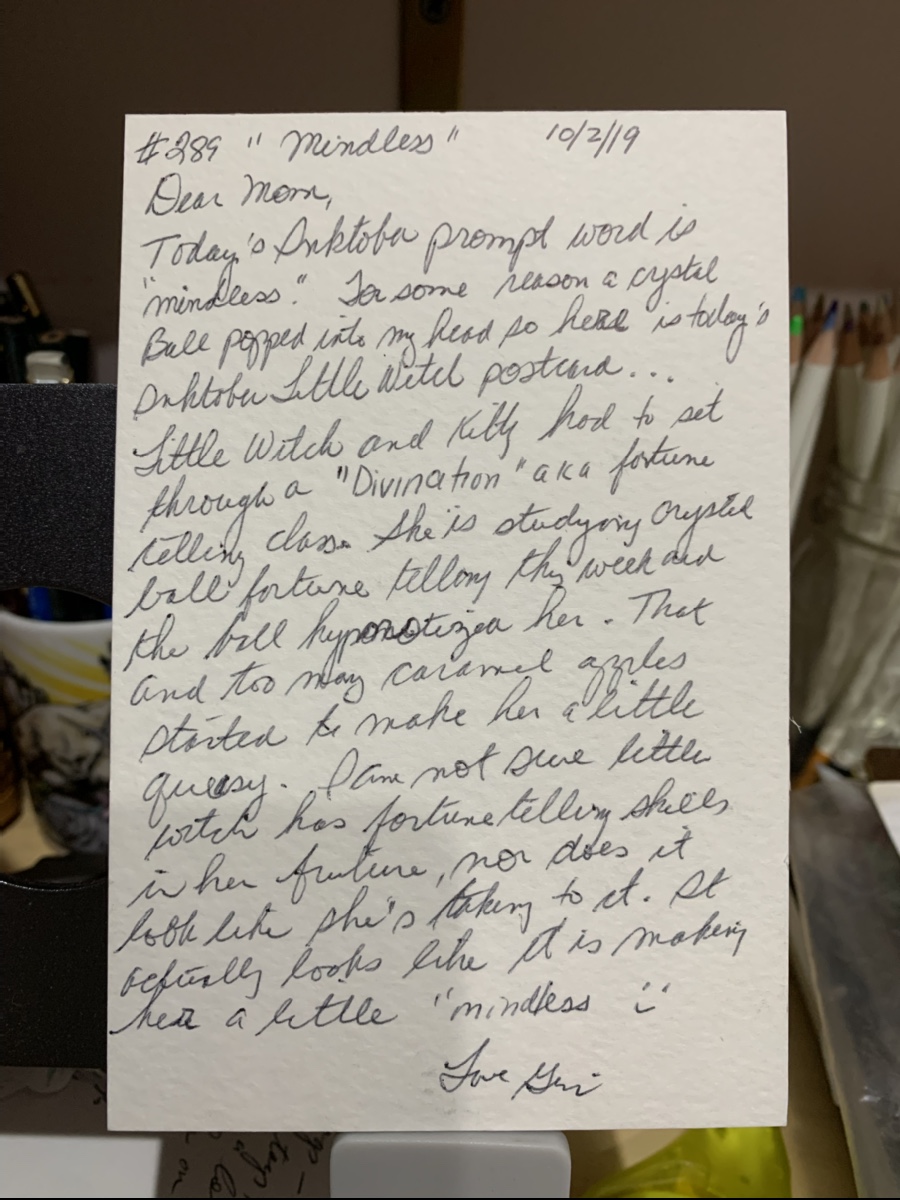 #289 "Mindless" 10/2/19
Dear Mom,
Today's Inktober prompt word is
"mindless". For some reason a crystal
Ball popped into my head so here is today's
Inktober Little Witch postcard...
Little Witch and Kitty had to set
through a "Divination" aka fortune
telling class. She is studying crystal
ball fortune telling this week and
the ball hypnotized her. That
and too many caramel apples
started to make her a little
queasy. I am not sure little
witch has fortune telling skills
in her future, nor does it
look like she's taking to it. It
actually looks like it is making
her a little "mindless"
Love Geri